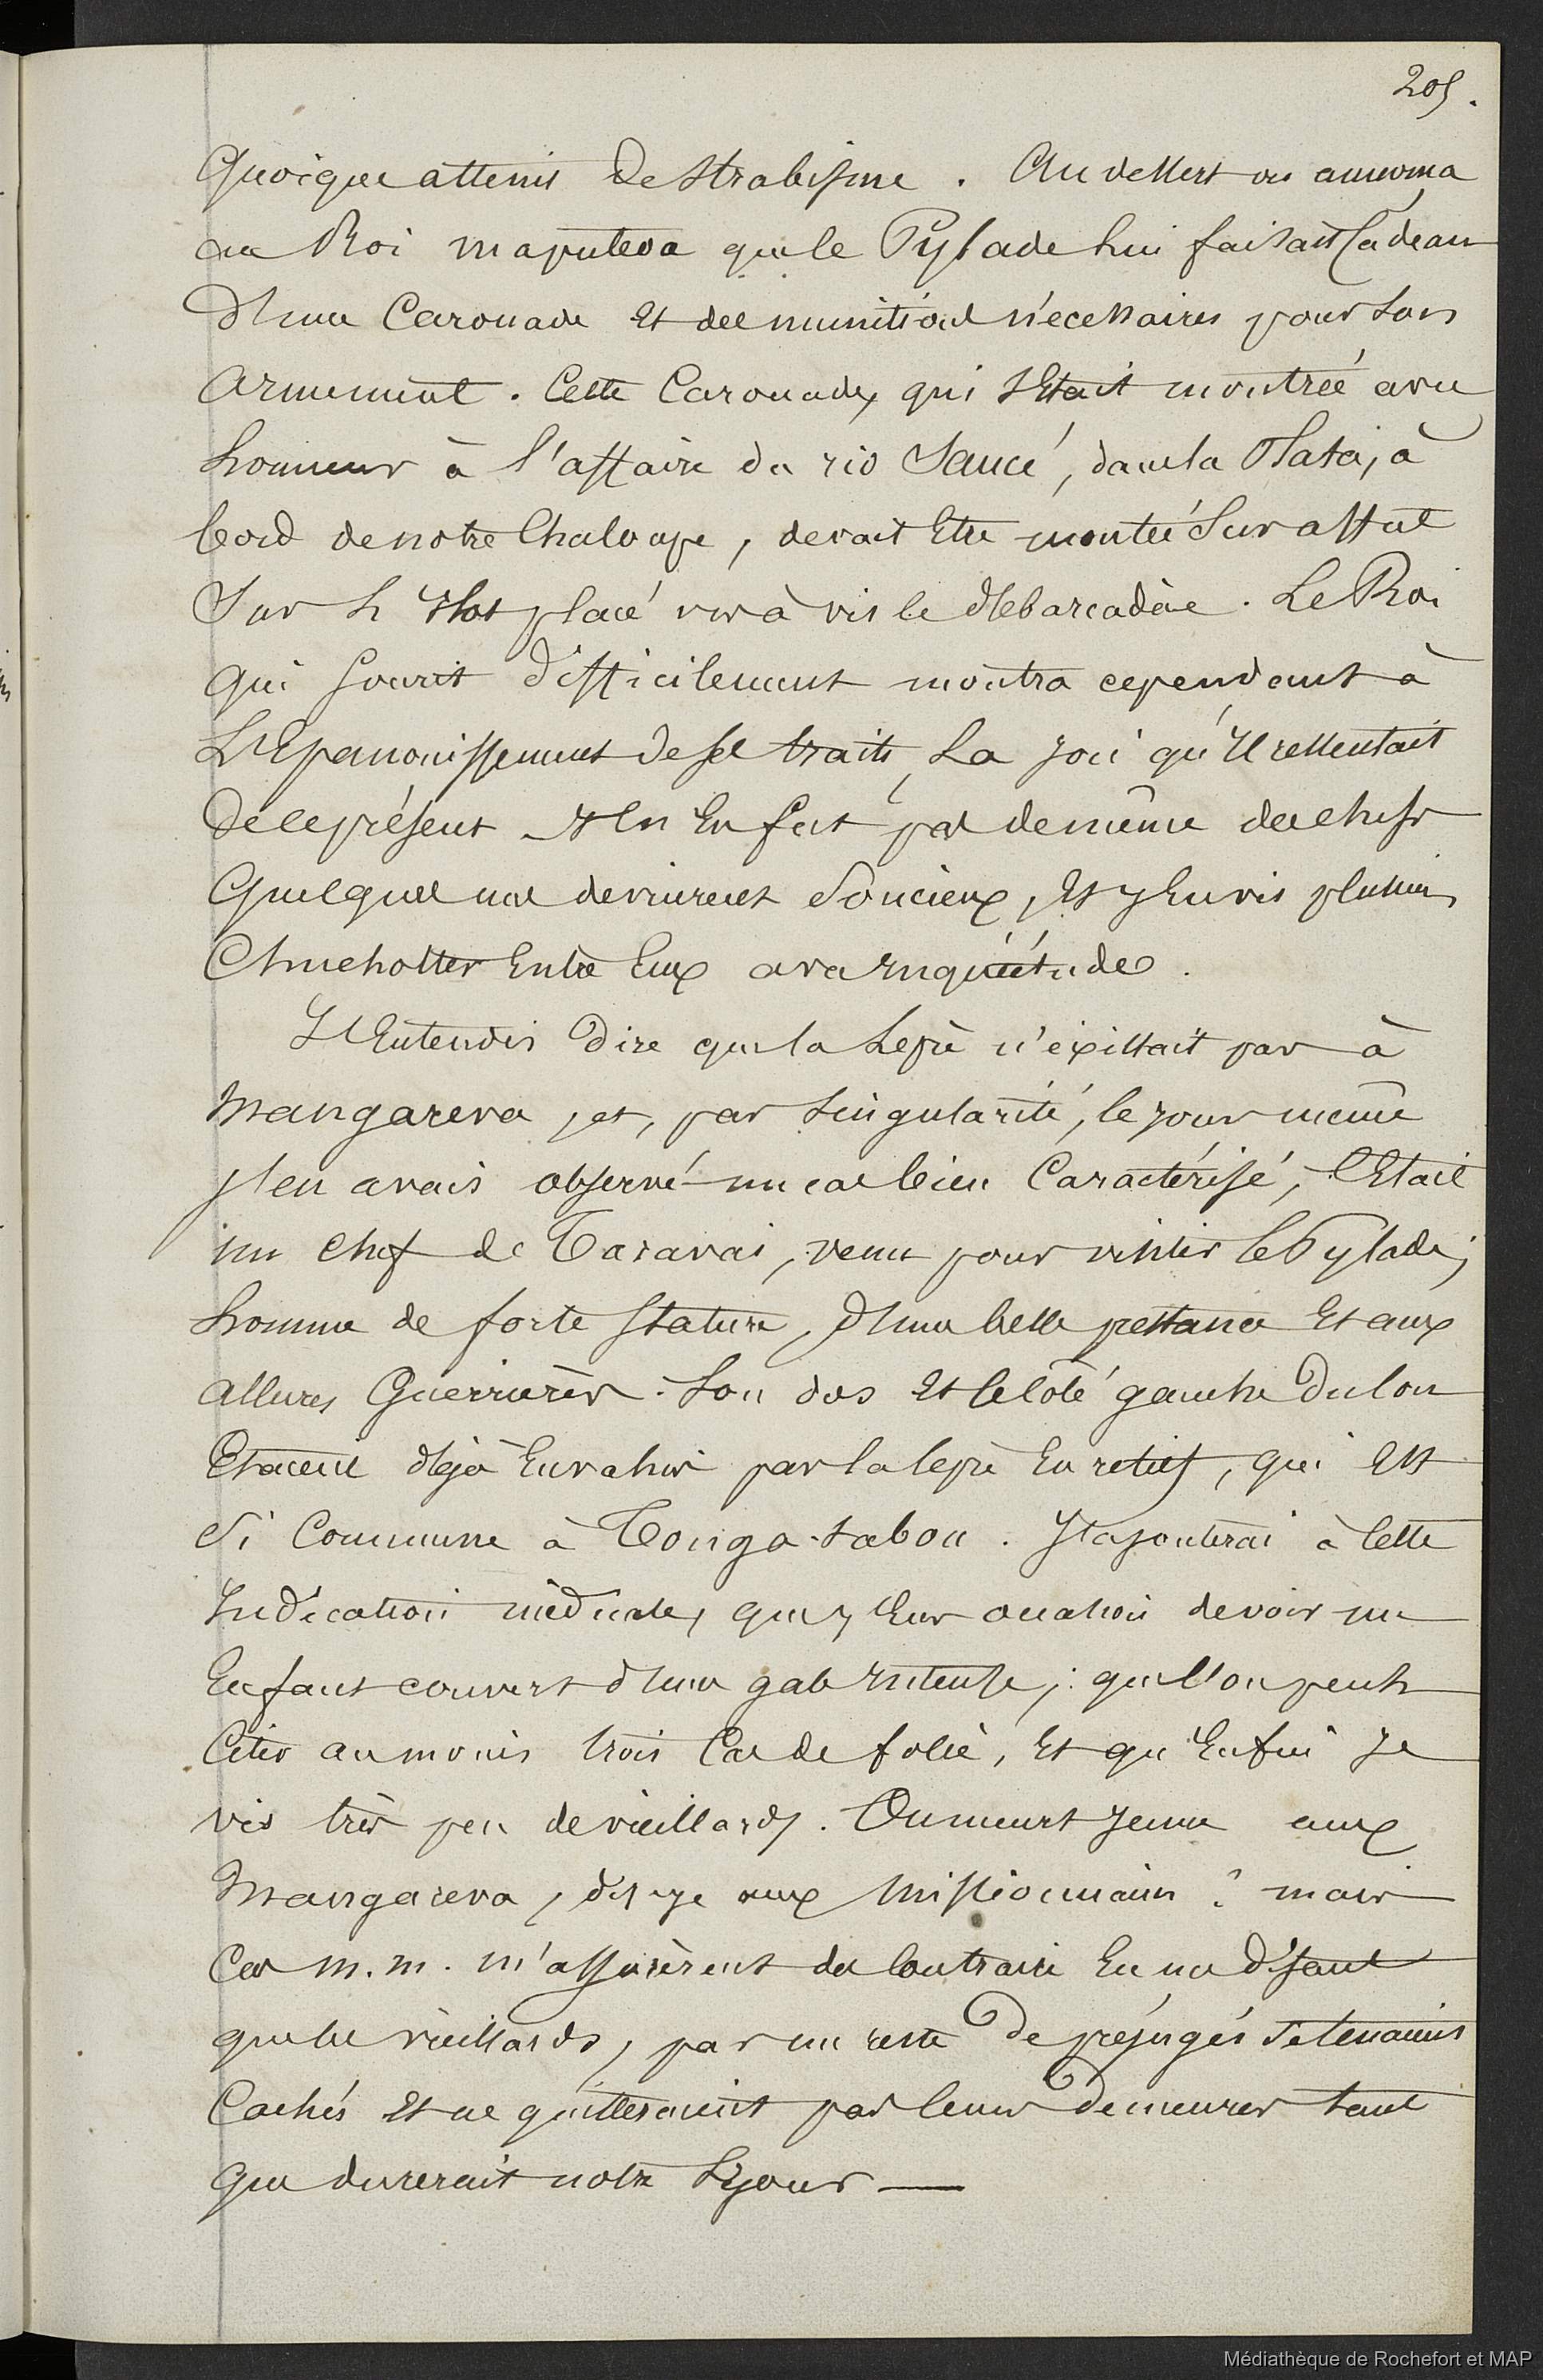 205.
Quoique atteint de strabisme. Au dessert on annonça
au Roi maputeoa que le Pylade lui faisait Cadeau
d'une Caronade et des munitions nécessaires pour son
armement. Cette Caronade, qui s'était montrée avec
honneur à l'affaire du rio Saucé, dans la Plata, à
bord de notre Chaloupe, devait être montée sur affut
sur l'Ilot placé vis à vis le débarcadère. Le Roi
qui sourit difficilement montra cependant à
L'Epanouissement de ses traits, la joie qu'Il ressentait
de ce présent Il n'en fut pas de même des chefs
Quelques uns devinrent soucieux, et j'en vis plusieurs
Chuchotter entre Eux avec Inquiétude.
J'Entendis dire que la Lèpre n'existait pas à
Mangareva, et, par singularité, le jour même
j'en avais observé un cas bien Caractérisé, C'était
un chef de Taravai, venu pour visiter le Pylade;
homme de forte stature, d'une belle prestance et aux
allures Guerrières. Son dos et le côté gauche du cou
Etaient déjà Envahis par la lèpre En relief, qui est
si Commune à Tonga-tabou. J'ajouterai à cette
Indication médicale, que j'eus occasion de voir un
Enfant couvert d'une gale Intense; que l'on peut
Citer au moins trois Cas de folie, et qu'Enfin Je
vis très peu de vieillards. On meurt jeune aux
Mangareva, dis-je aux Missionnaires? mais
Ces M.M. m'assurèrent du Contraire En me disant
que les vieillards, par un reste de préjugés se tenaient
Cachés et ne quitteraient pas leurs demeures tant
que durerait notre séjour —
Médiathèque de Rochefort et MAP